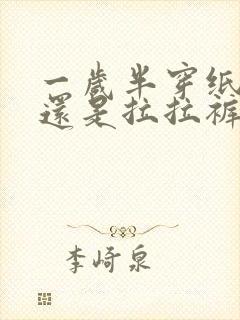 一歲半穿纸
還是拉拉褲
李崎泉